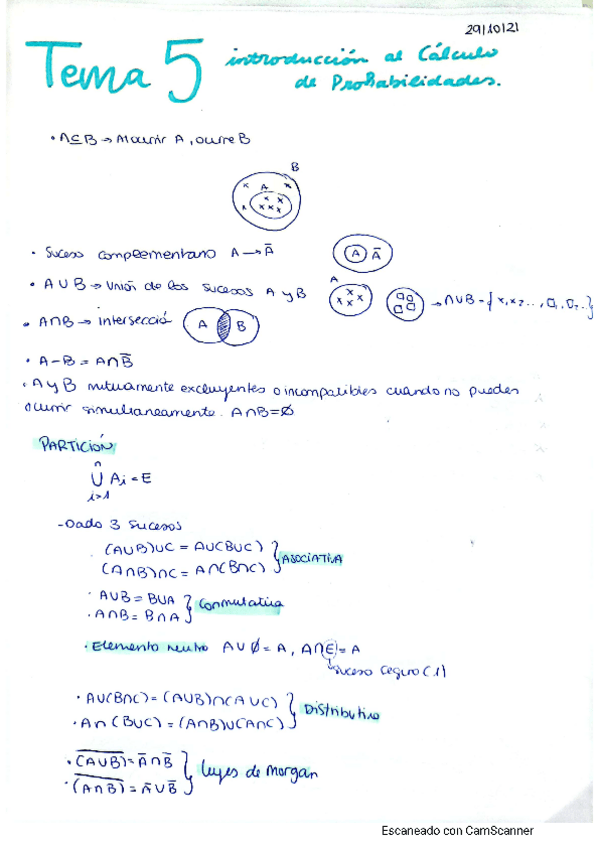 29/10/21
Tema 5 introducción al Cálculo
de Probabilidades.
· A⊆B → Al ocurrir A, ocurre B
B
A
· Suceso complementario A → Ā
A Ā
· A ∪ B → Unión de los sucesos A y B
A
→ A∪B = {x, x, ..., □, □, ..}
· A∩B → intersecció
A B
· A-B = A∩B̄
· A y B mutuamente excluyentes o incompatibles cuando no puedes
ocurrir simultaneamente. A∩B=∅
PARTICIÓN
n
∪ Ai = E
i>1
- Dado 3 sucesos
(A∪B)∪C = A∪(B∪C)
(A∩B)∩C = A∩(B∩C)
ASOCIATIVA
· A∪B = B∪A
· A∩B = B∩A
Conmutativa
· Elemento neutro A∪∅ = A, A∩E = A
suceso seguro (1)
· A∪(B∩C) = (A∪B)∩(A∪C)
· A∩(B∪C) = (A∩B)∪(A∩C)
Distributivo
· (A∪B)‾ = Ā∩B̄
· (A∩B)‾ = Ā∪B̄
leyes de Morgan
Escaneado con CamScanner